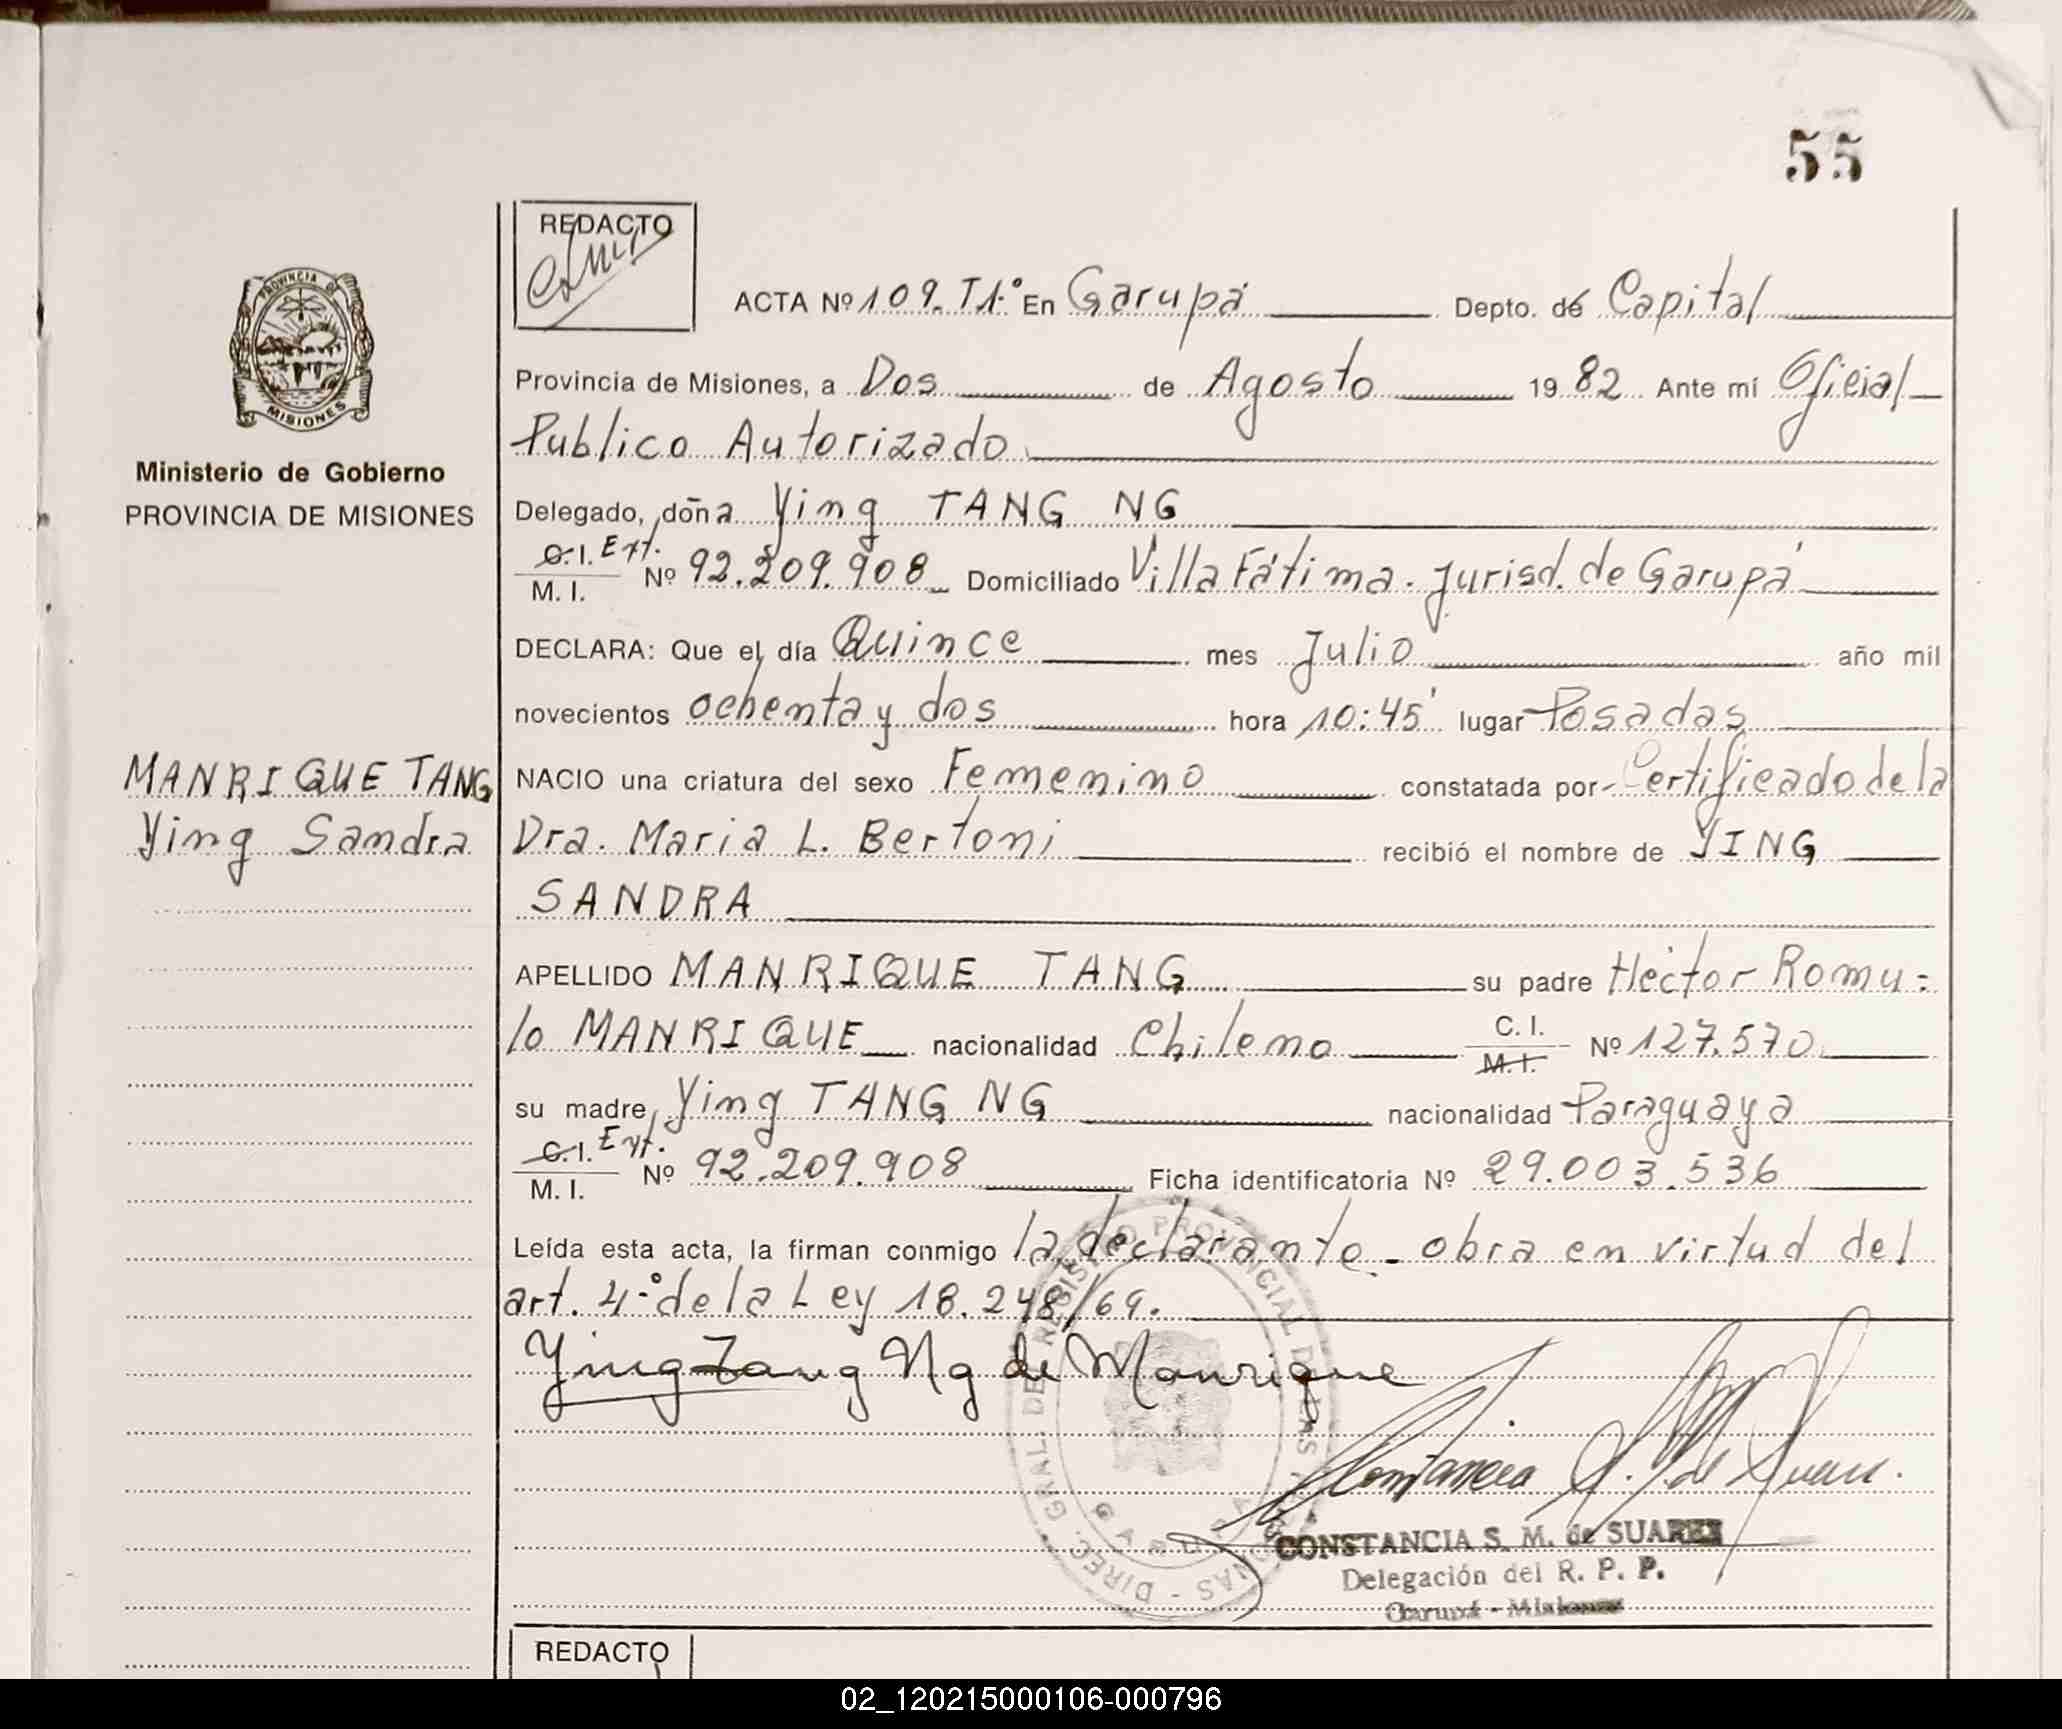 55
REDACTO
ACTA Nº 109. T1.º En Garupá Depto. de Capital
PROVINCIA DE
MISIONES
Provincia de Misiones, a Dos de Agosto 1982 Ante mí Oficial
Publico Autorizado
Ministerio de Gobierno
PROVINCIA DE MISIONES
Delegado, doña Ying TANG NG
C.I. Ext.
M. I. Nº 92.209.908 Domiciliado Villa Fátima. Jurisd. de Garupá
DECLARA: Que el día Quince mes Julio año mil
novecientos ochenta y dos hora 10:45' lugar Posadas
MANRIQUE TANG
Ying Sandra
NACIO una criatura del sexo Femenino constatada por Certificado de la
Dra. Maria L. Bertoni recibió el nombre de YING
SANDRA
APELLIDO MANRIQUE TANG su padre Héctor Romu=
lo MANRIQUE nacionalidad Chileno C. I. M. I. Nº 127.570
su madre, Ying TANG NG nacionalidad Paraguaya
C.I. Ext.
M. I. Nº 92.209.908 Ficha identificatoria Nº 29.003.536
Leída esta acta, la firman conmigo la declarante - obra en virtud del
art. 4.º de la Ley 18.248/69.
Ying Tang Ng de Manrique
DIREC. GRAL. DEL REGISTRO PROVINCIAL DE LAS PERSONAS
GARUPA
CONSTANCIA S. M. de SUAREZ
Delegación del R. P. P.
Garupá - Misiones
REDACTO
02_120215000106-000796